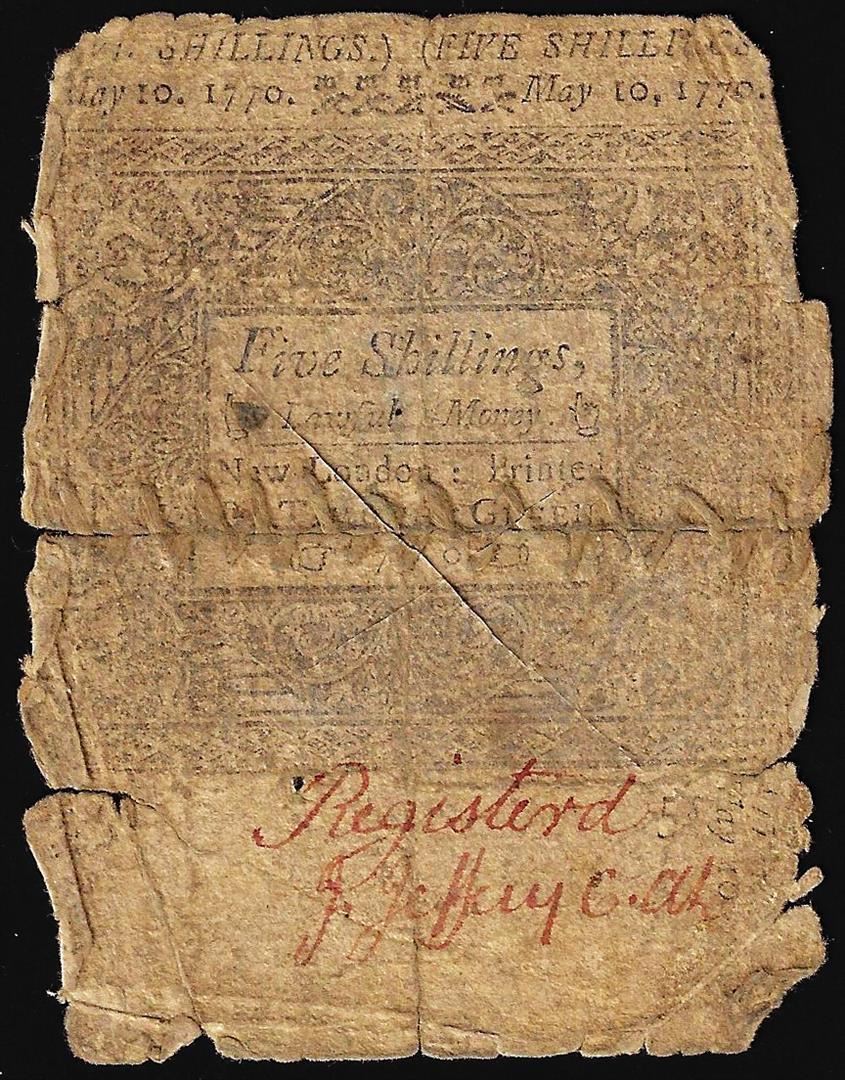 SHILLINGS.) (FIVE SHILLINGS
May 10. 1770. May 10, 1770.
Five Shillings,
Lawful Money.
New London: Printed
GREEN
Registerd
J. Jeffery
May